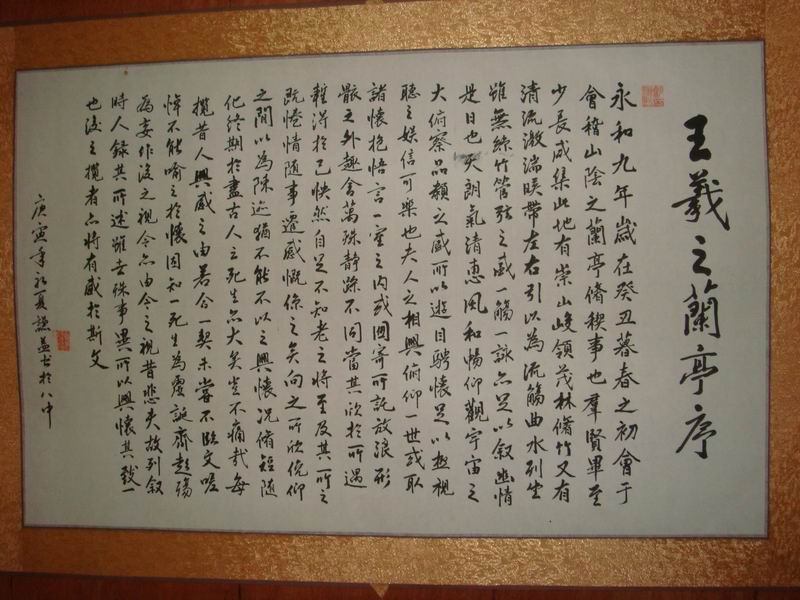 王羲之蘭亭序
永和九年歲在癸丑暮春之初會于
會稽山陰之蘭亭脩稧事也羣賢畢至
少長咸集此地有崇山峻領茂林脩竹又有
清流激湍暎帶左右引以為流觴曲水列坐
雖無絲竹管弦之盛一觴一詠亦足以叙幽情
是日也天朗氣清惠風和暢仰觀宇宙之
大俯察品類之盛所以遊目騁懷足以極視
聽之娛信可樂也夫人之相與俯仰一世或取
諸懷抱悟言一室之内或因寄所託放浪形
骸之外趣舍萬殊静躁不同當其欣於所遇
暫得於己快然自足不知老之將至及其所之
既惓情随事遷感慨係之矣向之所欣俛仰
之間以為陳迹猶不能不以之興懷況脩短随
化終期於盡古人云死生亦大矣豈不痛哉每
攬昔人興感之由若合一契未嘗不臨文嗟
悼不能喻之於懷固知一死生為虛誕齊彭殤
為妄作後之視今亦由今之視昔悲夫故列叙
時人錄其所述雖世殊事異所以興懷其致一
也後之攬者亦將有感於斯文
庚寅年初夏謙益书於八中